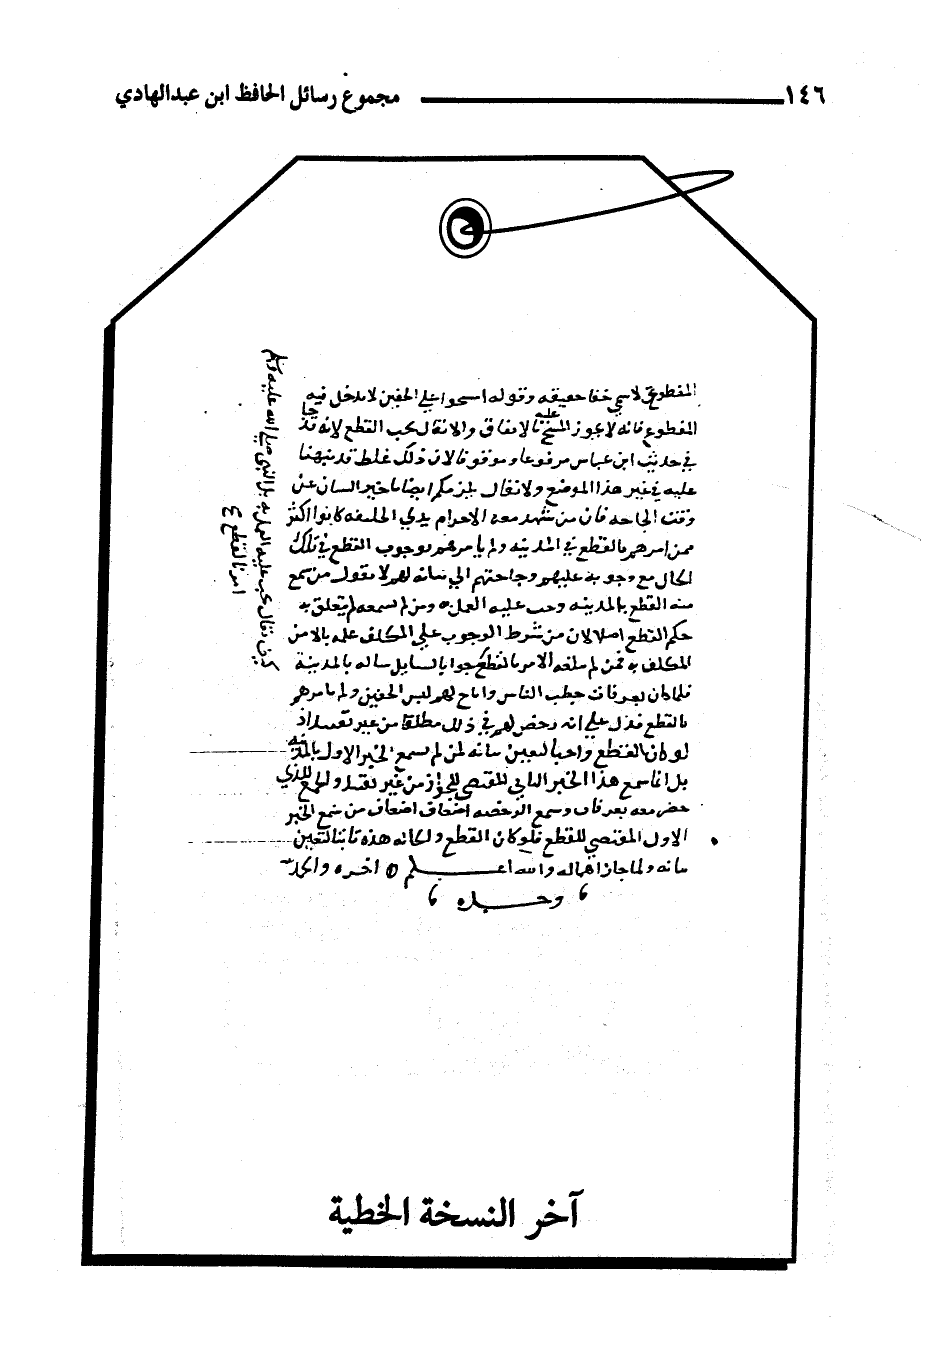 ١٤٦ مجموع رسائل الحافظ ابن عبدالهادي
المقطوع لا سمي خفا حقيقه وقوله امسحوا على الخفين لا يدخل فيه
المقطوع فانه لا يجوز المسح عليه بالاتفاق ولا يقال يجب القطع لانه قد جا
في حديث ابن عباس مرفوعا وموقوفا لان ذلك غلط قد نبهنا
عليه في غير هذا الموضع ولا يقال يلزمكم ايضا تاخير البيان عن
وقت الحاجه فان من شهد معه الاحرام بذي الحليفه كانوا اكثر
ممن امرهم بالقطع في المدينه ولم يامرهم بوجوب القطع في تلك
الحال مع وجوبه عليهم وحاجتهم الى بيانه لهم لانا نقول من سمع
منه القطع بالمدينه وجب عليه العمل به ومن لم يسمعه لم يتعلق به
حكم القطع اصلا لان من شرط الوجوب على المكلف علمه بالامر
المكلف به فمن لم يبلغه الامر بالقطع جوابا لسايل ساله بالمدينة
فلما كان بعرفات خطب الناس واباح لهم لبس الخفين ولم يامرهم
بالقطع فدل على انه رخص لهم في ذلك مطلقا من غير تقييد اذ
لو كان القطع واجبا لتعين بيانه لمن لم يسمع الخبر الاول بالمدينه
بل انما سمع هذا الخبر الثاني المقتضي للجواز من غير تقييد والجمع الذي
حضر معه بعرفات وسمع الرخصه اضعاف اضعاف من سمع الخبر
الاول المقتضي للقطع فلو كان القطع والحاله هذه ثابتا لتعين
بيانه ولما جاز اهماله والله اعلم اخره والحمد لله
وحده
كيف يقال يجب عليه العمل به بل النبي صلى الله عليه وسلم
امر بالقطع
آخر النسخة الخطية